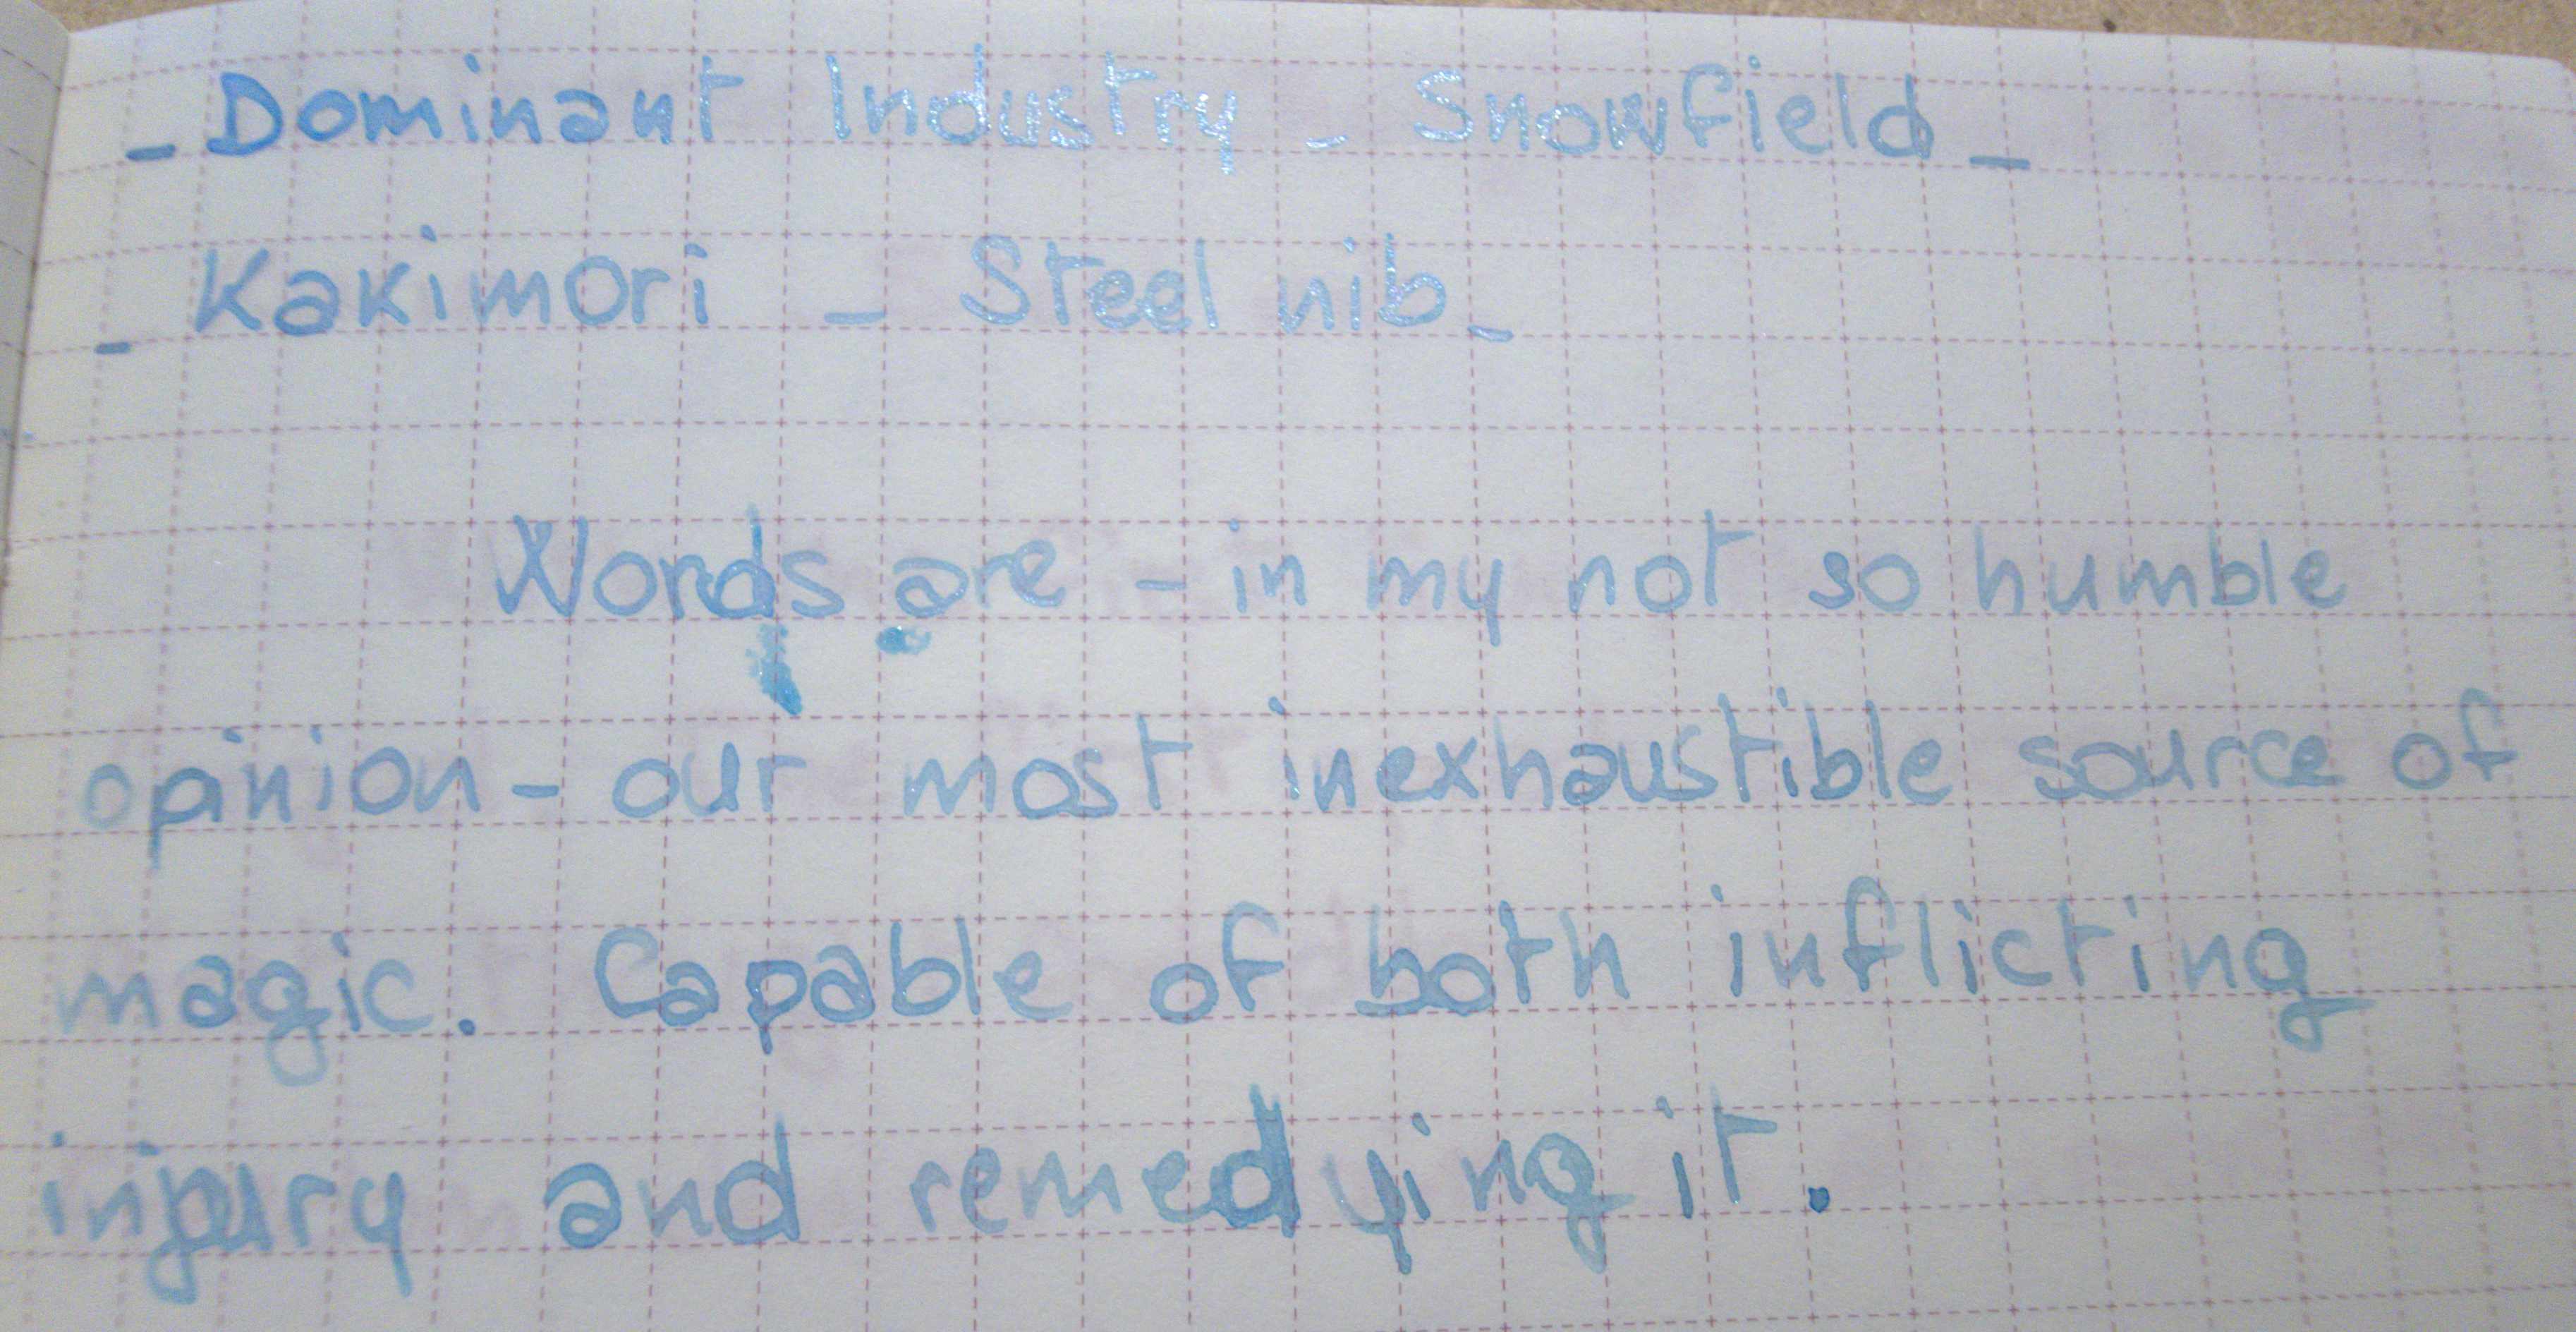 - Dominant Industry - Snowfield -
- Kakimori - Steel nib -
Words are - in my not so humble
opinion - our most inexhaustible source of
magic. Capable of both inflicting
injury and remedying it.